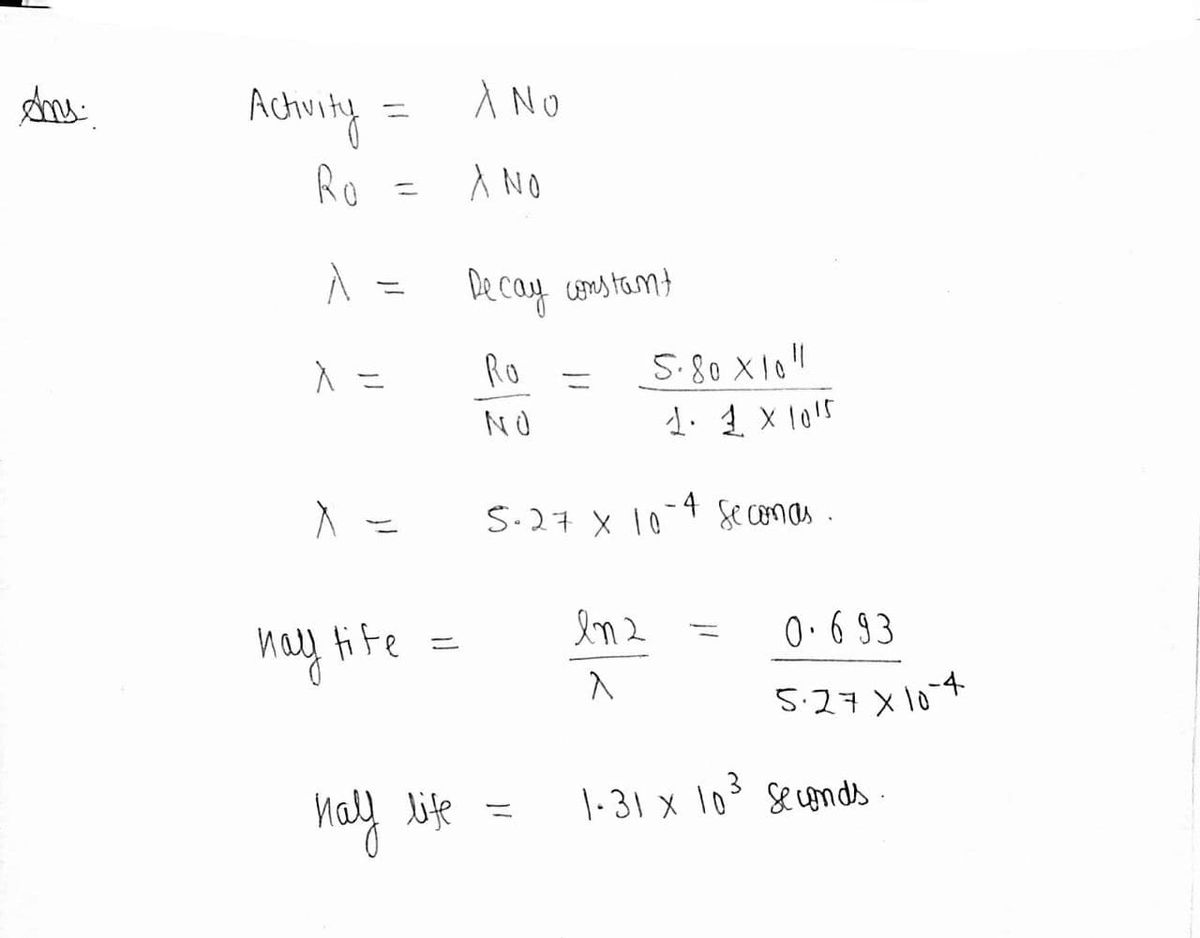 Ans: Activity = λ N0
R0 = λ N0
λ = Decay constant
λ = R0/N0 = 5.80 × 10^11 / 1.1 × 10^15
λ = 5.27 × 10^-4 seconds.
half life = ln2/λ = 0.693 / 5.27 × 10^-4
half life = 1.31 × 10^3 seconds.